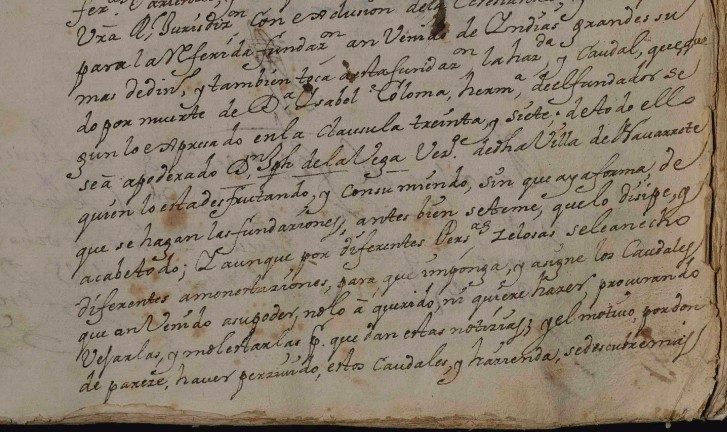 Vrã Rl Jurisdizon con exclusion de la
para la referida fundazon an Venido de Indias grandes su
mas de din.s, y tambien toca a esta fundazon la haz.da y Caudal, que que
do por muerte de D.a Ysabel Coloma, herm.a de el fundador se
gun lo expresado en la Clausula treinta, y siete; de todo ello
se a apoderado Dn Jph de la Vega Vez.o de dha Villa de Navarrete
quien lo esta desfrutando, y Consumiendo, sin que aya forma de
que se hagan las fundaziones, antes bien se teme, que lo disipe, y
acabe todo; Y aunque por diferentes Pers.as Zelosas se le an echo
diferentes amonestaziones, para que imponga, y asigne los Caudales
que an Venido a su poder, no lo à querido, ni quiere hazer, procurando
Vejarlas, y molestarlas p. que dan estas notizias; y el motivo, por don
de pareze, haver perzivido, estos Caudales, y hazienda, se descubre mas